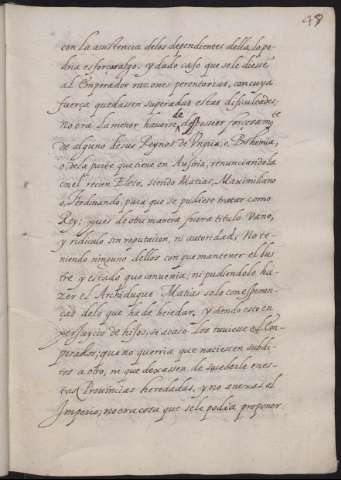 48
con la assistencia delos dependientes della la po-
dria esforçar algo. y dado caso que sele diesse
al Emperador razones perentorias, con cuya
fuerça quedassen superadas estas dificultades,
no era la menor hauerse de desposseer forçosamte
de alguno de sus Reynos de Vngria, o Bohemia,
o dela parte que tiene en Austria, renunciandola
en el recien Eleto, siendo Matias, Maximiliano
o Ferdinando, para que se pudiese tratar como
Rey; pues de otra manera fuera titulo vano,
y ridiculo sin reputacion, ni autoridad; No te-
niendo ninguno dellos con que mantener el lus
tre y estado que conuenia; ni pudiendolo ha-
zer el Archiduque Matias solo con esperan-
ças delo que ha de heredar, y siendo esto en
perjuycio de hijos, si acaso los tuuiese el Em-
perador, que no querria que naciessen subdi-
tos a otro, ni que dexassen de suceder le en es-
tas Prouincias heredadas, y no anexas al
Imperio; no era cosa que sele podia proponer.